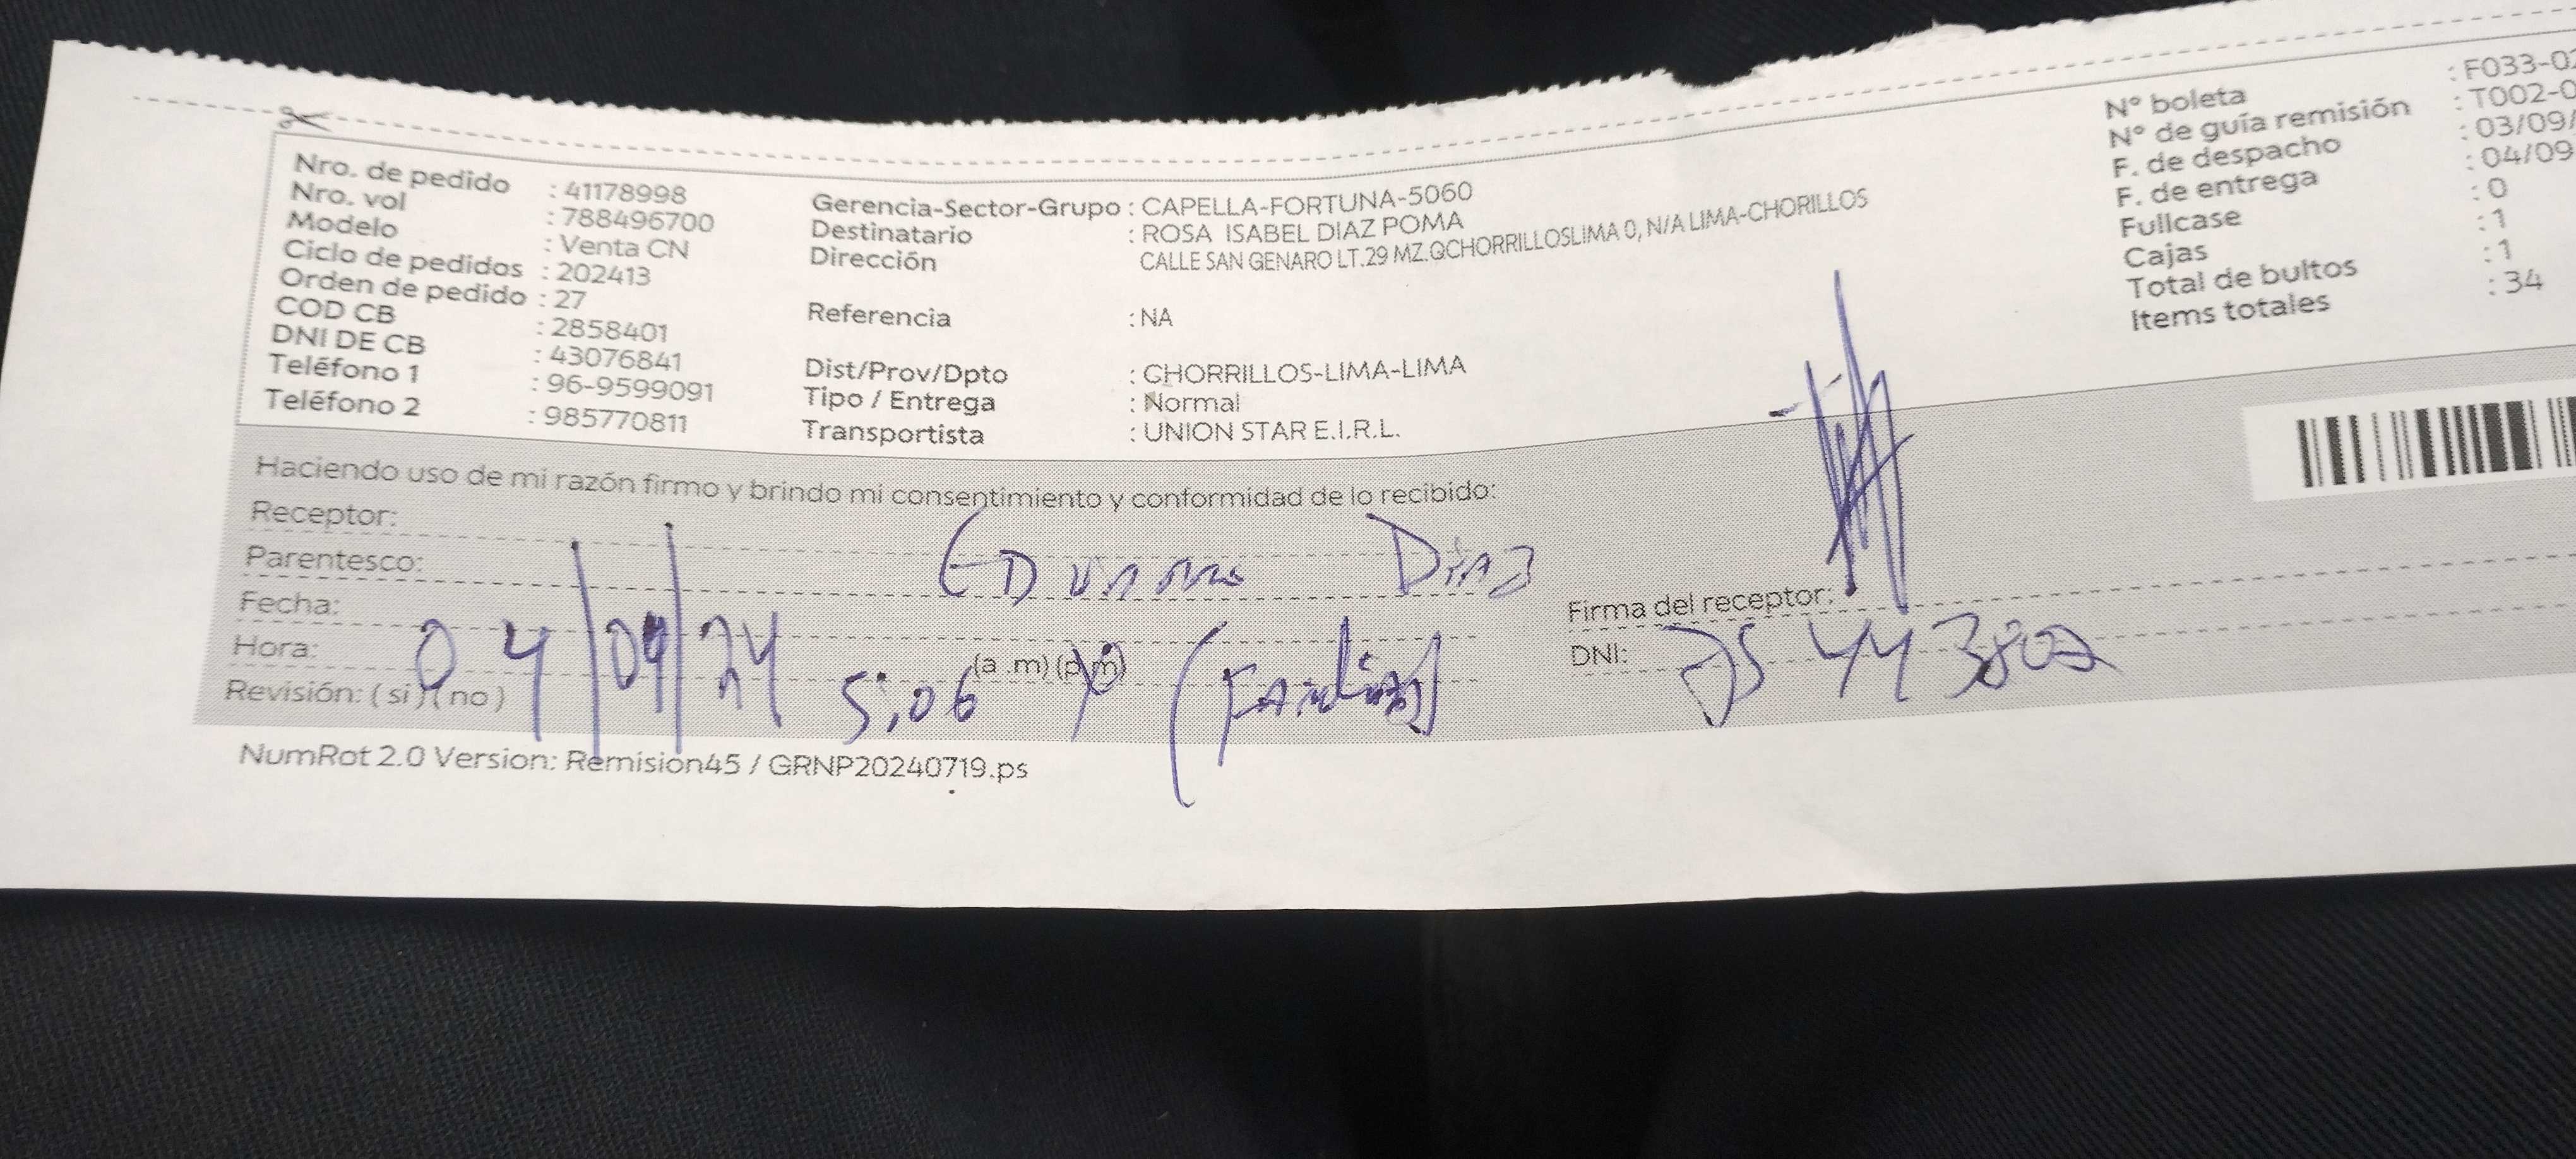 Nro. de pedido : 41178998
Nro. vol : 788496700
Modelo : Venta CN
Ciclo de pedidos : 202413
Orden de pedido : 27
COD CB : 2858401
DNI DE CB : 43076841
Teléfono 1 : 96-9599091
Teléfono 2 : 985770811
Gerencia-Sector-Grupo : CAPELLA-FORTUNA-5060
Destinatario : ROSA ISABEL DIAZ POMA
Dirección CALLE SAN GENARO LT.29 MZ.QCHORRILLOSLIMA 0, N/A LIMA-CHORILLOS
Referencia : NA
Dist/Prov/Dpto : CHORRILLOS-LIMA-LIMA
Tipo / Entrega : Normal
Transportista : UNION STAR E.I.R.L.
N° boleta : F033-02
N° de guía remisión : T002-0
F. de despacho : 03/09/
F. de entrega : 04/09
Fullcase : 0
Cajas : 1
Total de bultos : 1
Items totales : 34
Haciendo uso de mi razón firmo y brindo mi consentimiento y conformidad de lo recibido:
Receptor:
Parentesco: Eduardo Diaz
Fecha: 04/09/24
Hora: 5:06 (a .m) (p.m) (Familiar)
Revisión: ( si ) ( no )
Firma del receptor:
DNI: 75443802
NumRot 2.0 Version: Remision45 / GRNP20240719.ps